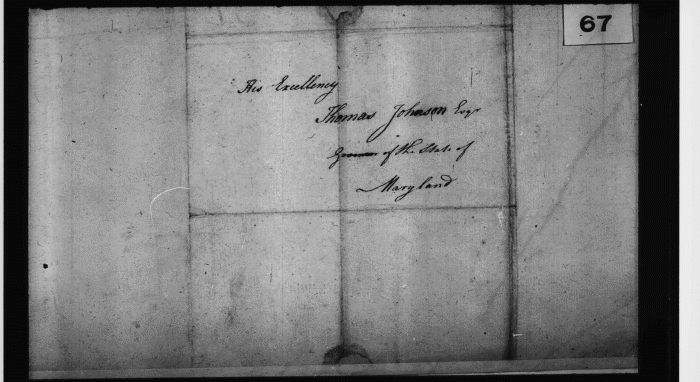 67
His Excellency
Thomas Johnson Esqr
Governor of the State of
Maryland